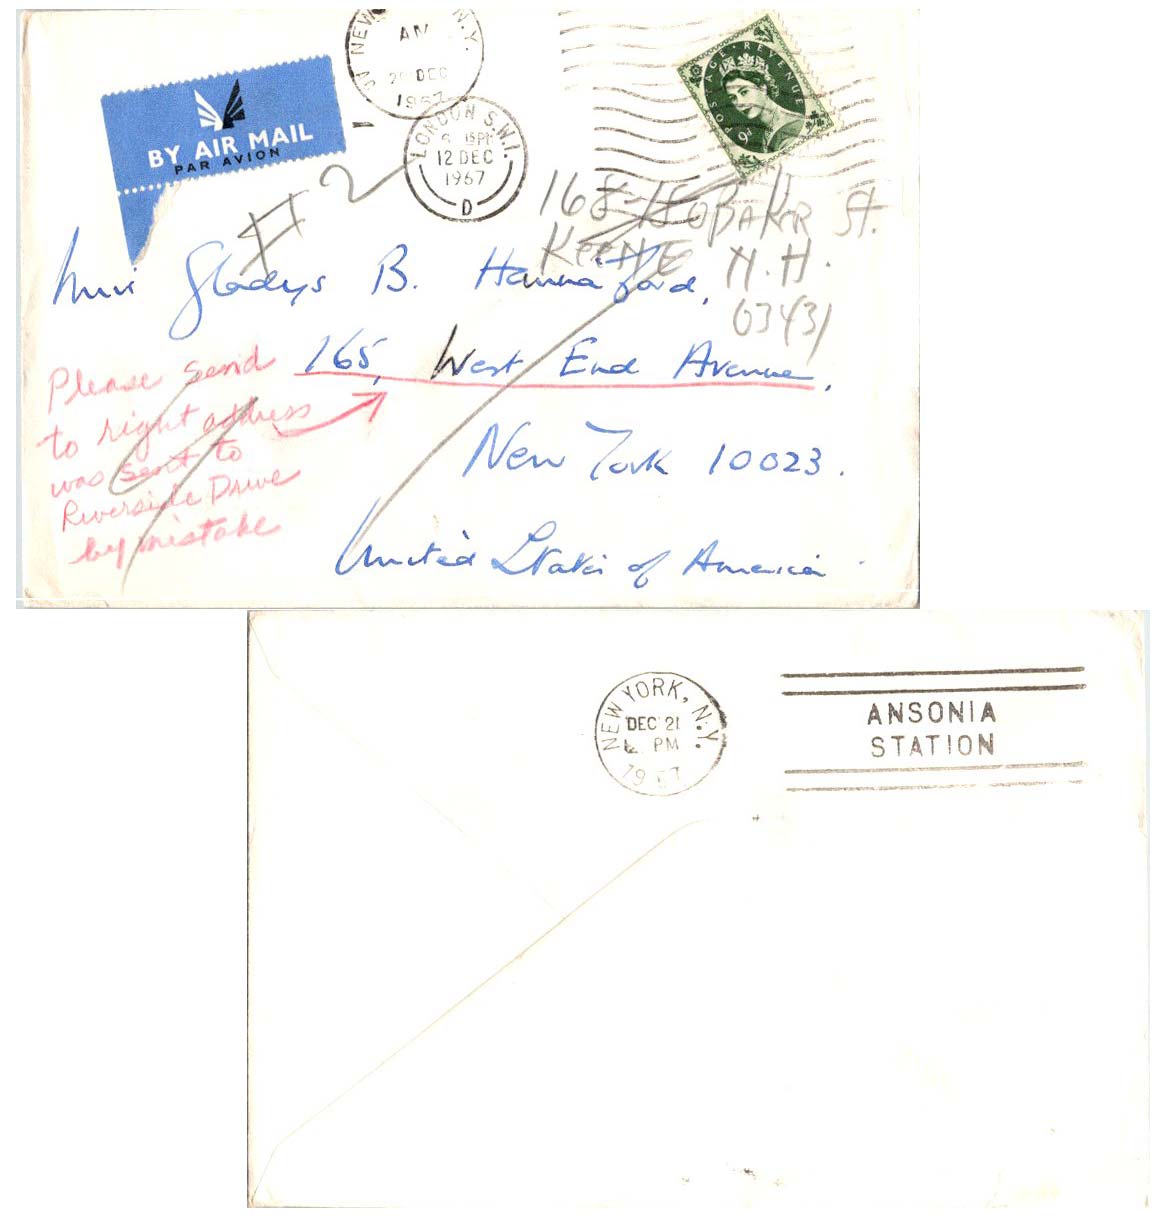 NEW N.Y.
AM
DEC
1967
BY AIR MAIL
PAR AVION
LONDON S.W.1.
15PM
12 DEC
1967
D
POSTAGE REVENUE
9D
#2
168-180 BAKER St.
KEENE N.H.
03431
Miss Gladys B. Hannaford,
165, West End Avenue,
New York 10023.
United States of America
Please send
to right address
was sent to
Riverside Drive
by mistake
NEW YORK, N.Y.
DEC 21
PM
1967
ANSONIA
STATION